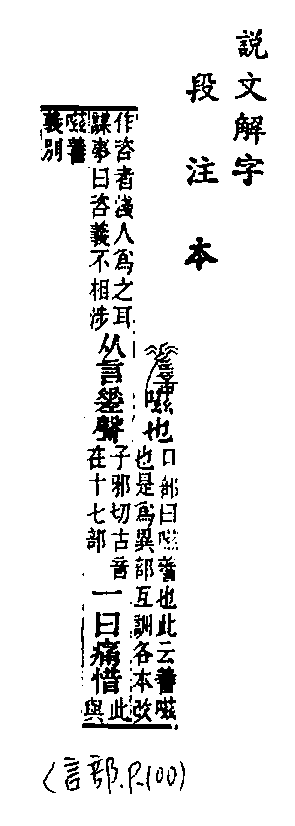 說文解字
段注本
嗞也
口部曰嗞䜺也此云䜺嗞
也是爲異部互訓各本改
作咨者淺人爲之耳
謀事曰咨義不相涉
从言差聲
子邪切古音
在十七部
一曰痛惜
此
與
嗞䜺
義別
(言部.P.100)